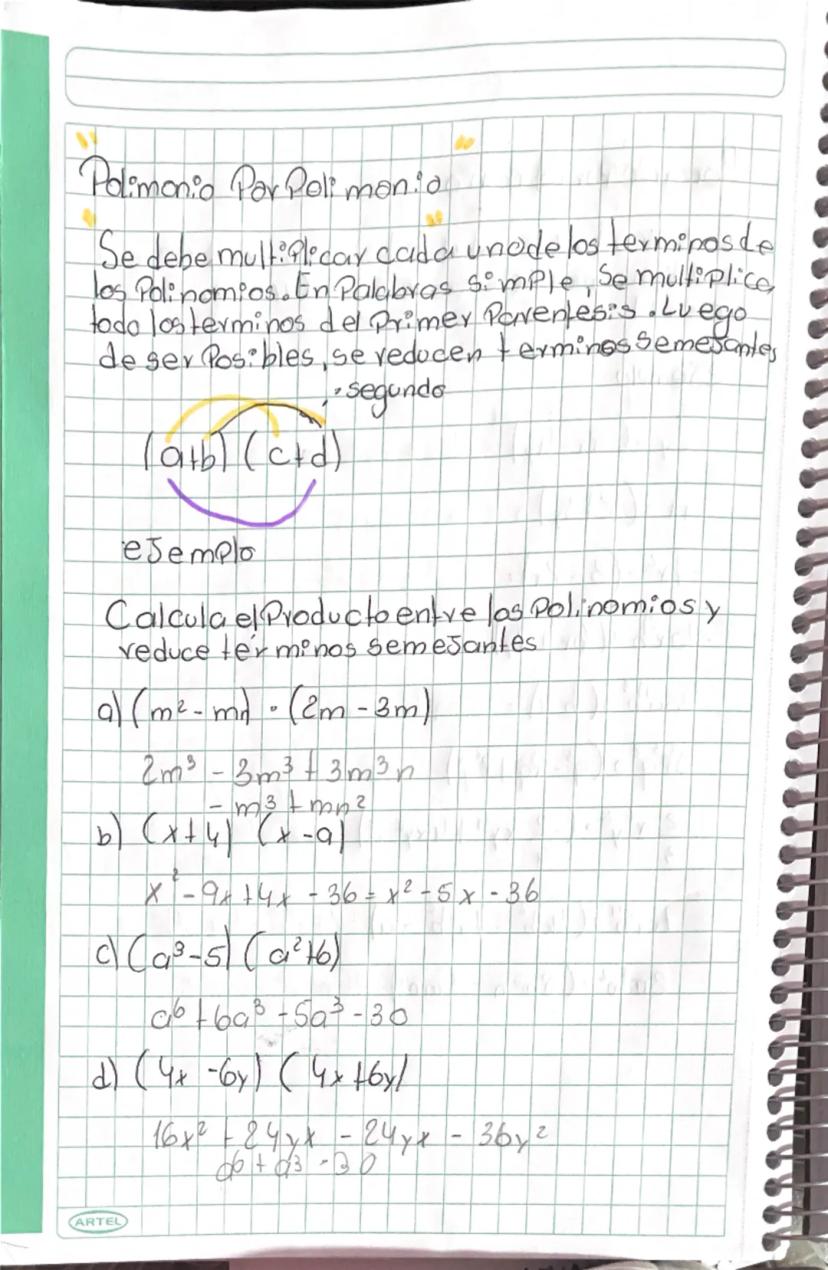 Polimonio Por Polimonio
Se debe multiplicar cada uno de los terminos de
los Polinomios. En Palabras simple, Se multiplica
todo los terminos del Primer Parentesis. Luego
de ser Posibles, se reducen terminos semejantes
segundo
(a+b) (c+d)
ejemplo
Calcula el Producto entre los Polinomios y
reduce términos semejantes
a) (m² - m) · (2m - 3m)
2m³ - 3m³ + 3m³n
- m³ + mn²
b) (x+4) (x-9)
x² - 9x + 4x - 36 = x² - 5x - 36
c) (a³-5) (a²+6)
a⁶ + 6a³ - 5a³ - 30
d) (4x - 6y) (4x + 6y)
16x² + 24yx - 24yx - 36y²
a⁶ + a³ - 30
ARTEL